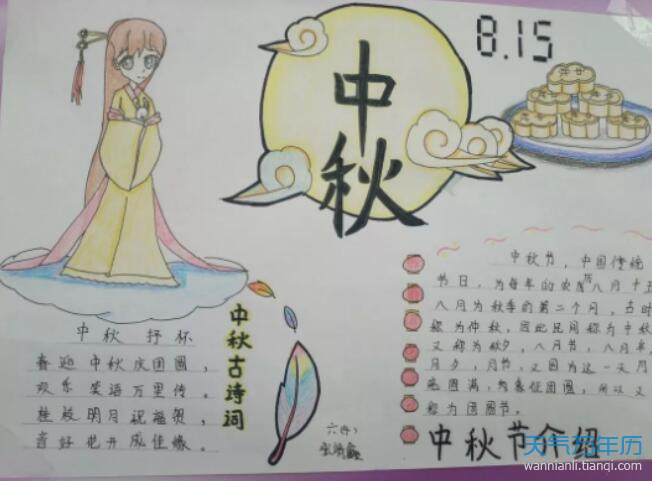 8.15
中
秋
中秋 抒怀
喜迎中秋庆团圆,
欢乐笑语万里传。
桂殿明月祝福贺,
喜好花开成佳缘。
中秋古诗词
中秋节,中国传统
节日,为每年的农历八月十五
八月为秋季的第二个月,古时
称为仲秋,因此民间称为中秋
又称为秋夕,八月节,八月半,
月夕,月节,又因为这一天月
亮圆满,象征团圆,所以又
称为团圆节。
中秋节介绍
天气万年历
wannianli.tianqi.com